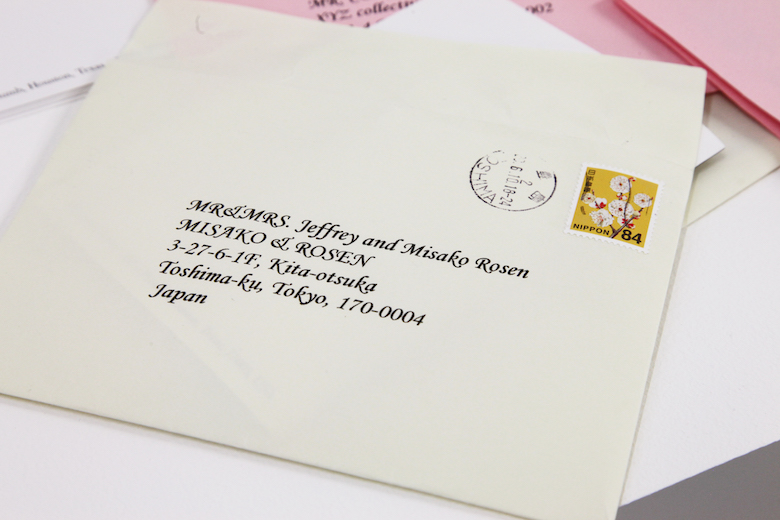 MR.
XYZ collecti
002
Houston, Texas
TOSHIMA
NIPPON 84
MR&MRS. Jeffrey and Misako Rosen
MISAKO & ROSEN
3-27-6-1F, Kita-otsuka
Toshima-ku, Tokyo, 170-0004
Japan